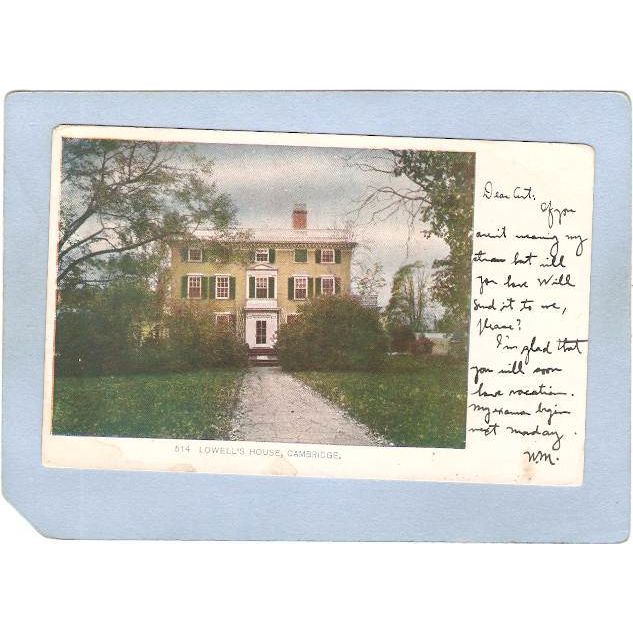 514 LOWELL'S HOUSE, CAMBRIDGE.
Dear Art:
If you
aren't wearing my
straw hat will
you have Will
send it to me,
please?
I'm glad that
you will soon
have vacation.
My exams begin
next monday.
WM.